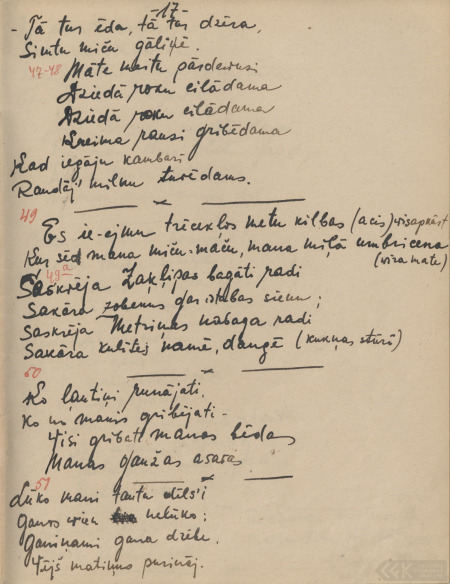 -17-
- Tā tus ēda, tā tus dzēra,
Simtu miču gāliņē.
47-48 Māte meitu pārdevusi
Dziedā roku cilādama
Dziedā roku cilādama
Kreima pausi gribēdama
Kad iegāju kambarī
Raudāj' milnu turēdams.
49
Es ie-ejmu trīcekļos metu kilbas (acis) wisapkārt
Kur sēd mana miču-māču, mana miļā umbricena
(wīra māte)
49a
Saskrēja Zaķļipas bagāti radi
Sakāra zobenus gar istabas sienu;
Saskrēja Metriņas nabaga radi
Sakāra kulītej namē, dangē (kukņas stūrī)
50
Ko ļautiņi runājati.
Ko no manis gribējati -
Visi gribat manas bēdas
Manas gaužas asaras
51
Lūko mani tautu dēls'i
Gauros wien nelūko;
Ganiņami gana dzēbe.
Vējš matiņus purinēj.